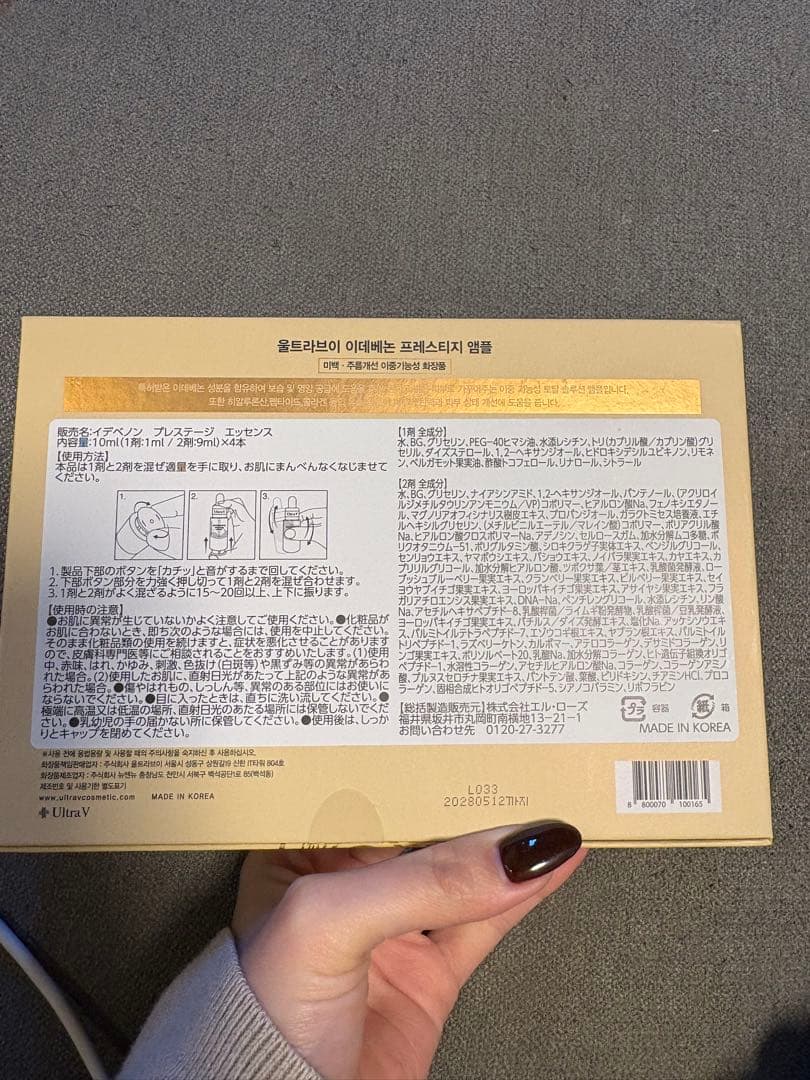 울트라브이 이데베논 프레스티지 앰플
미백 · 주름개선 이중기능성 화장품
특허받은 이데베논 성분을 함유하여 보습 및 영양 공급에 도움을 가꾸어주는 이중 기능성 토탈 솔루션 앰플입니다.
또한 히알루론산, 펩타이드, 콜라겐 피부 상태 개선에 도움을 줍니다.
販売名:イデベノン プレステージ エッセンス
内容量:10ml(1剤:1ml / 2剤:9ml)×4本
【使用方法】
本品は1剤と2剤を混ぜ適量を手に取り、お肌にまんべんなくなじませて
ください。
1.
2.
3.
1. 製品下部のボタンを「カチッ」と音がするまで回してください。
2. 下部ボタン部分を力強く押し切って1剤と2剤を混ぜ合わせます。
3. 1剤と2剤がよく混ざるように15~20回以上、上下に振ります。
【使用時の注意】
●お肌に異常が生じていないかよく注意してご使用ください。●化粧品が
お肌に合わないとき、即ち次のような場合には、使用を中止してください。
そのまま化粧品類の使用を続けますと、症状を悪化させることがあります
ので、皮膚科専門医等にご相談されることをおすすめいたします。(1)使用
中、赤味、はれ、かゆみ、刺激、色抜け(白斑等)や黒ずみ等の異常があらわ
れた場合。(2)使用したお肌に、直射日光があたって上記のような異常が
あらわれた場合。●傷やはれもの、しっしん等、異常のある部位にはお使いに
ならないでください。●目に入ったときは、直ちに洗い流してください。●
極端に高温又は低温の場所、直射日光のあたる場所には保管しないでくだ
さい。●乳幼児の手の届かない所に保管してください。●使用後は、しっか
りとキャップを閉めてください。
【1剤 全成分】
水、BG、グリセリン、PEG-40ヒマシ油、水添レシチン、トリ(カプリル酸/カプリン酸)グリ
セリル、ダイズステロール、1,2-ヘキサンジオール、ヒドロキシデシルユビキノン、リモネ
ン、ベルガモット果実油、酢酸トコフェロール、リナロール、シトラール
【2剤 全成分】
水、BG、グリセリン、ナイアシンアミド、1,2-ヘキサンジオール、パンテノール、(アクリロイ
ルジメチルタウリンアンモニウム/VP)コポリマー、ヒアルロン酸Na、フェノキシエタノー
ル、マグノリアオフィシナリス樹皮エキス、プロパンジオール、ガラクトミセス培養液、エチ
ルヘキシルグリセリン、(メチルビニルエーテル/マレイン酸)コポリマー、ポリアクリル酸
Na、ヒアルロン酸クロスポリマーNa、アデノシン、セルロースガム、加水分解ムコ多糖、ポ
リクオタニウム-51、ポリグルタミン酸、シロキクラゲ子実体エキス、ベンジルグリコール、
センリョウエキス、ヤマボウシエキス、バショウエキス、ノイバラ果実エキス、カヤエキス、カ
プリリルグリコール、加水分解ヒアルロン酸、ツボクサ葉/茎エキス、乳酸菌発酵液、ロ
ーブッシュブルーベリー果実エキス、クランベリー果実エキス、ビルベリー果実エキス、セイ
ヨウヤブイチゴ果実エキス、ヨーロッパキイチゴ果実エキス、アサイヤシ果実エキス、フラ
ガリアチロエンシス果実エキス、DNA-Na、ペンチレングリコール、水添レシチン、リン酸
Na、アセチルヘキサペプチド-8、乳酸桿菌/ライムギ粉発酵物、乳酸桿菌/豆乳発酵液、
ヨーロッパキイチゴ果実エキス、バチルス/ダイズ発酵エキス、塩化Na、アッケシソウエキ
ス、パルミトイルテトラペプチド-7、エゾウコギ根エキス、ヤブラン根エキス、パルミトイル
トリペプチド-1、ラズベリーケトン、カルボマー、アテロコラーゲン、デサミドコラーゲン、リ
ンゴ果実エキス、ポリソルベート20、乳酸Na、加水分解コラーゲン、ヒト遺伝子組換オリゴ
ペプチド-1、水溶性コラーゲン、アセチルヒアルロン酸Na、コラーゲン、コラーゲンアミノ
酸、プルヌスセロチナ果実エキス、パントテン酸、葉酸、ピリドキシン、チアミンHCl、プロコ
ラーゲン、固相合成ヒトオリゴペプチド-5、シアノコバラミン、リボフラビン
【総括製造販売元】株式会社エル・ローズ
福井県坂井市丸岡町南横地13-21-1
お問い合わせ先 0120-27-3277
プラ 容器 紙 箱
MADE IN KOREA
※사용 전에 용법용량 및 사용할 때의 주의사항을 숙지하신 후 사용하십시오.
화장품책임판매업자 : 주식회사 울트라브이 서울시 성동구 상원길19 신한 IT타워 804호
화장품제조업자 : 주식회사 뉴앤뉴 충청남도 천안시 서북구 백석공단1로 85(백석동)
제조번호 및 사용기한 별도표기
www.ultravcosmetic.com MADE IN KOREA
Ultra V
L033
20280512까지
8 800070 100165